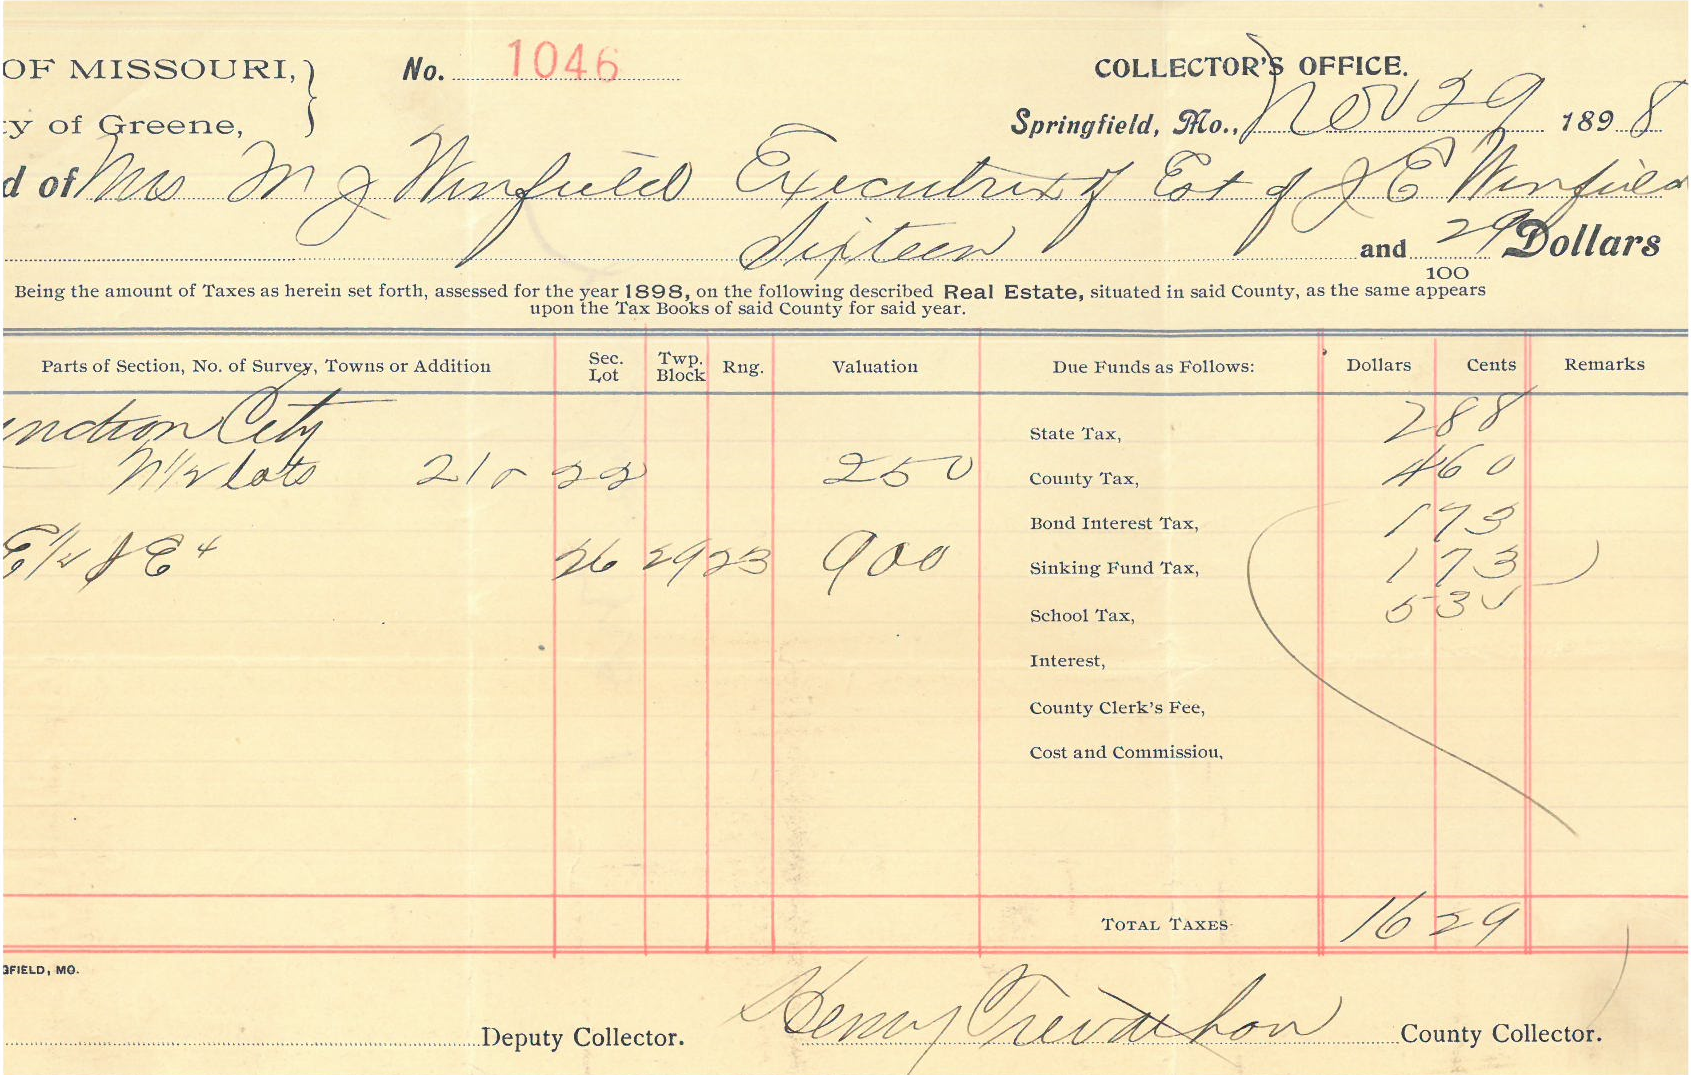 OF MISSOURI, } No. 1046 COLLECTOR'S OFFICE.
y of Greene, Springfield, Mo., Nov 29 1898
d of Mrs M J Winfield Executrix of Est of J E Winfield
Sixteen and 29/100 Dollars
Being the amount of Taxes as herein set forth, assessed for the year 1898, on the following described Real Estate, situated in said County, as the same appears
upon the Tax Books of said County for said year.
Parts of Section, No. of Survey, Towns or Addition Sec. Lot Twp. Block Rng. Valuation Due Funds as Follows: Dollars Cents Remarks
unction City State Tax, 2 88
N 1/2 lots 21 22 250 County Tax, 4 60
Bond Interest Tax, 1 73
26 29 23 900 Sinking Fund Tax, 1 73
School Tax, 5 3
Interest,
County Clerk's Fee,
Cost and Commission,
TOTAL TAXES 16 29
GFIELD, MO.
Deputy Collector. Henry County Collector.